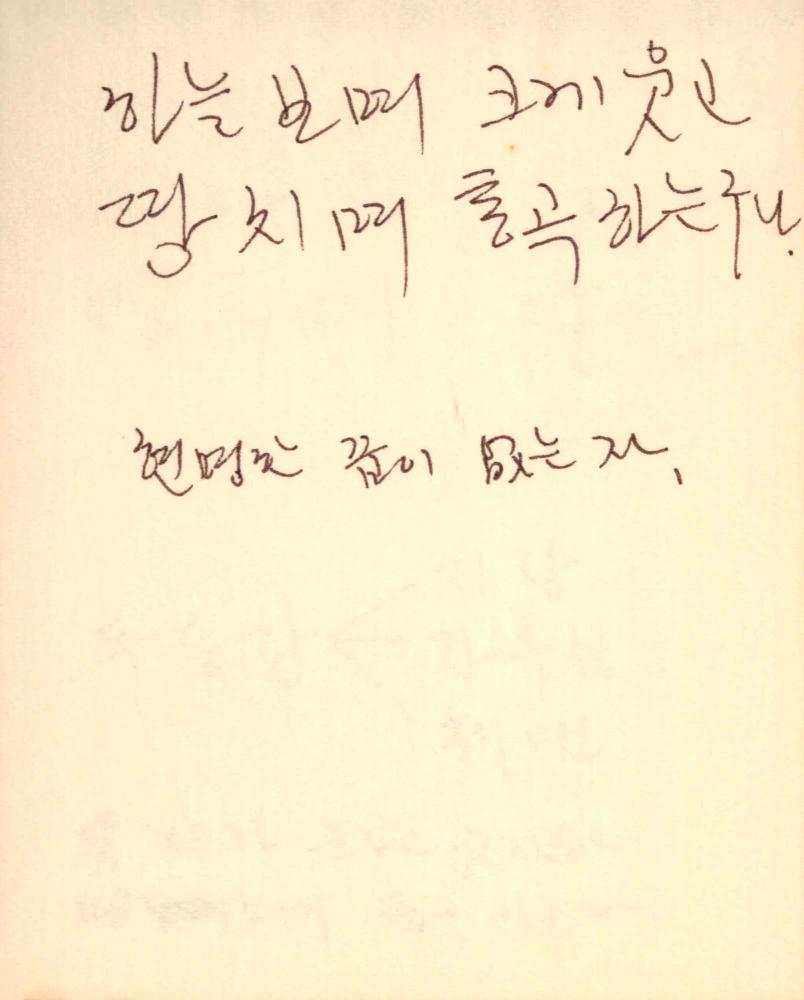 하늘 보며 크게 웃고
땅 치며 통곡하는구나.
현명한 끝이 없는 자,